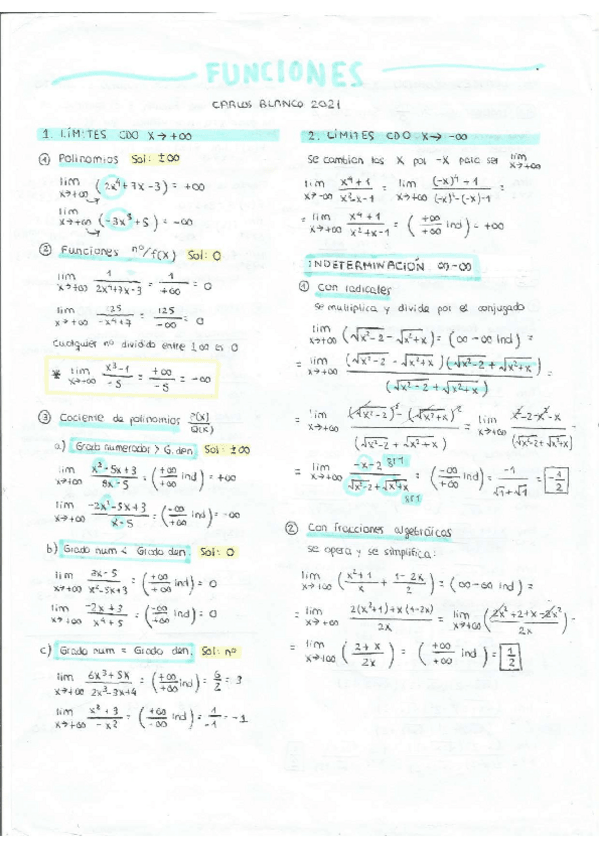 FUNCIONES
CARLOS BLANCO 2021
1. LÍMITES CDO X→+∞
① Polinomios Sol: ±∞
lim x→+∞ (2x⁴+7x-3) = +∞
lim x→+∞ (-3x³+5) = -∞
② Funciones nº/f(x) Sol: 0
lim x→+∞ 1/(2x²+7x-3) = 1/+∞ = 0
lim x→+∞ 125/(-x⁴+7) = 125/-∞ = 0
Cualquier nº dividido entre ±∞ es 0
* lim x→-∞ (x³-1)/-5 = +∞/-5 = -∞
③ Cociente de polinomios P(x)/Q(x)
a) Grado numerador > G. den Sol: ±∞
lim x→+∞ (x³-5x+3)/(8x-5) = (+∞/+∞ ind) = +∞
lim x→+∞ (-2x²-5x+3)/(x-5) = (-∞/+∞ ind) = -∞
b) Grado num < Grado den. Sol: 0
lim x→+∞ (3x-5)/(x²-5x+3) = (+∞/+∞ ind) = 0
lim x→+∞ (-2x+3)/(x⁴+5) = (-∞/+∞ ind) = 0
c) Grado num = Grado den. Sol: nº
lim x→+∞ (6x³+5x)/(2x³-3x+4) = (+∞/+∞ ind) = 6/2 = 3
lim x→+∞ (x²+3)/(-x²) = (+∞/-∞ ind) = 1/-1 = -1
2. LÍMITES CDO X→ -∞
Se cambian las X por -X para ser lim x→+∞
lim x→-∞ (x⁴+1)/(x²-x-1) = lim x→+∞ ((-x)⁴+1)/((-x)²-(-x)-1) =
= lim x→+∞ (x⁴+1)/(x²+x-1) = (+∞/+∞ ind) = +∞
INDETERMINACIÓN ∞-∞
① Con radicales
se multiplica y divide por el conjugado
lim x→+∞ (√x²-2 - √x²+x) = (∞-∞ ind) =
= lim x→+∞ (√x²-2 - √x²+x)(√x²-2 + √x²+x)/(√x²-2 + √x²+x) =
= lim x→+∞ ((√x²-2)² - (√x²+x)²)/(√x²-2 + √x²+x) = lim x→+∞ (x²-2-x²-x)/(√x²-2 + √x²+x)
= lim x→+∞ (-x-2)/(√x²-2 + √x²+x) = (-∞/+∞ ind) = -1/(√1+√1) = -1/2
② Con fracciones algebráicas
se opera y se simplifica:
lim x→+∞ ((x²+1)/x + (1-2x)/2) = (∞-∞ ind) =
= lim x→+∞ (2(x²+1)+x(1-2x))/2x = lim x→+∞ (2x²+2+x-2x²)/2x =
= lim x→+∞ ((2+x)/2x) = (+∞/+∞ ind) = 1/2